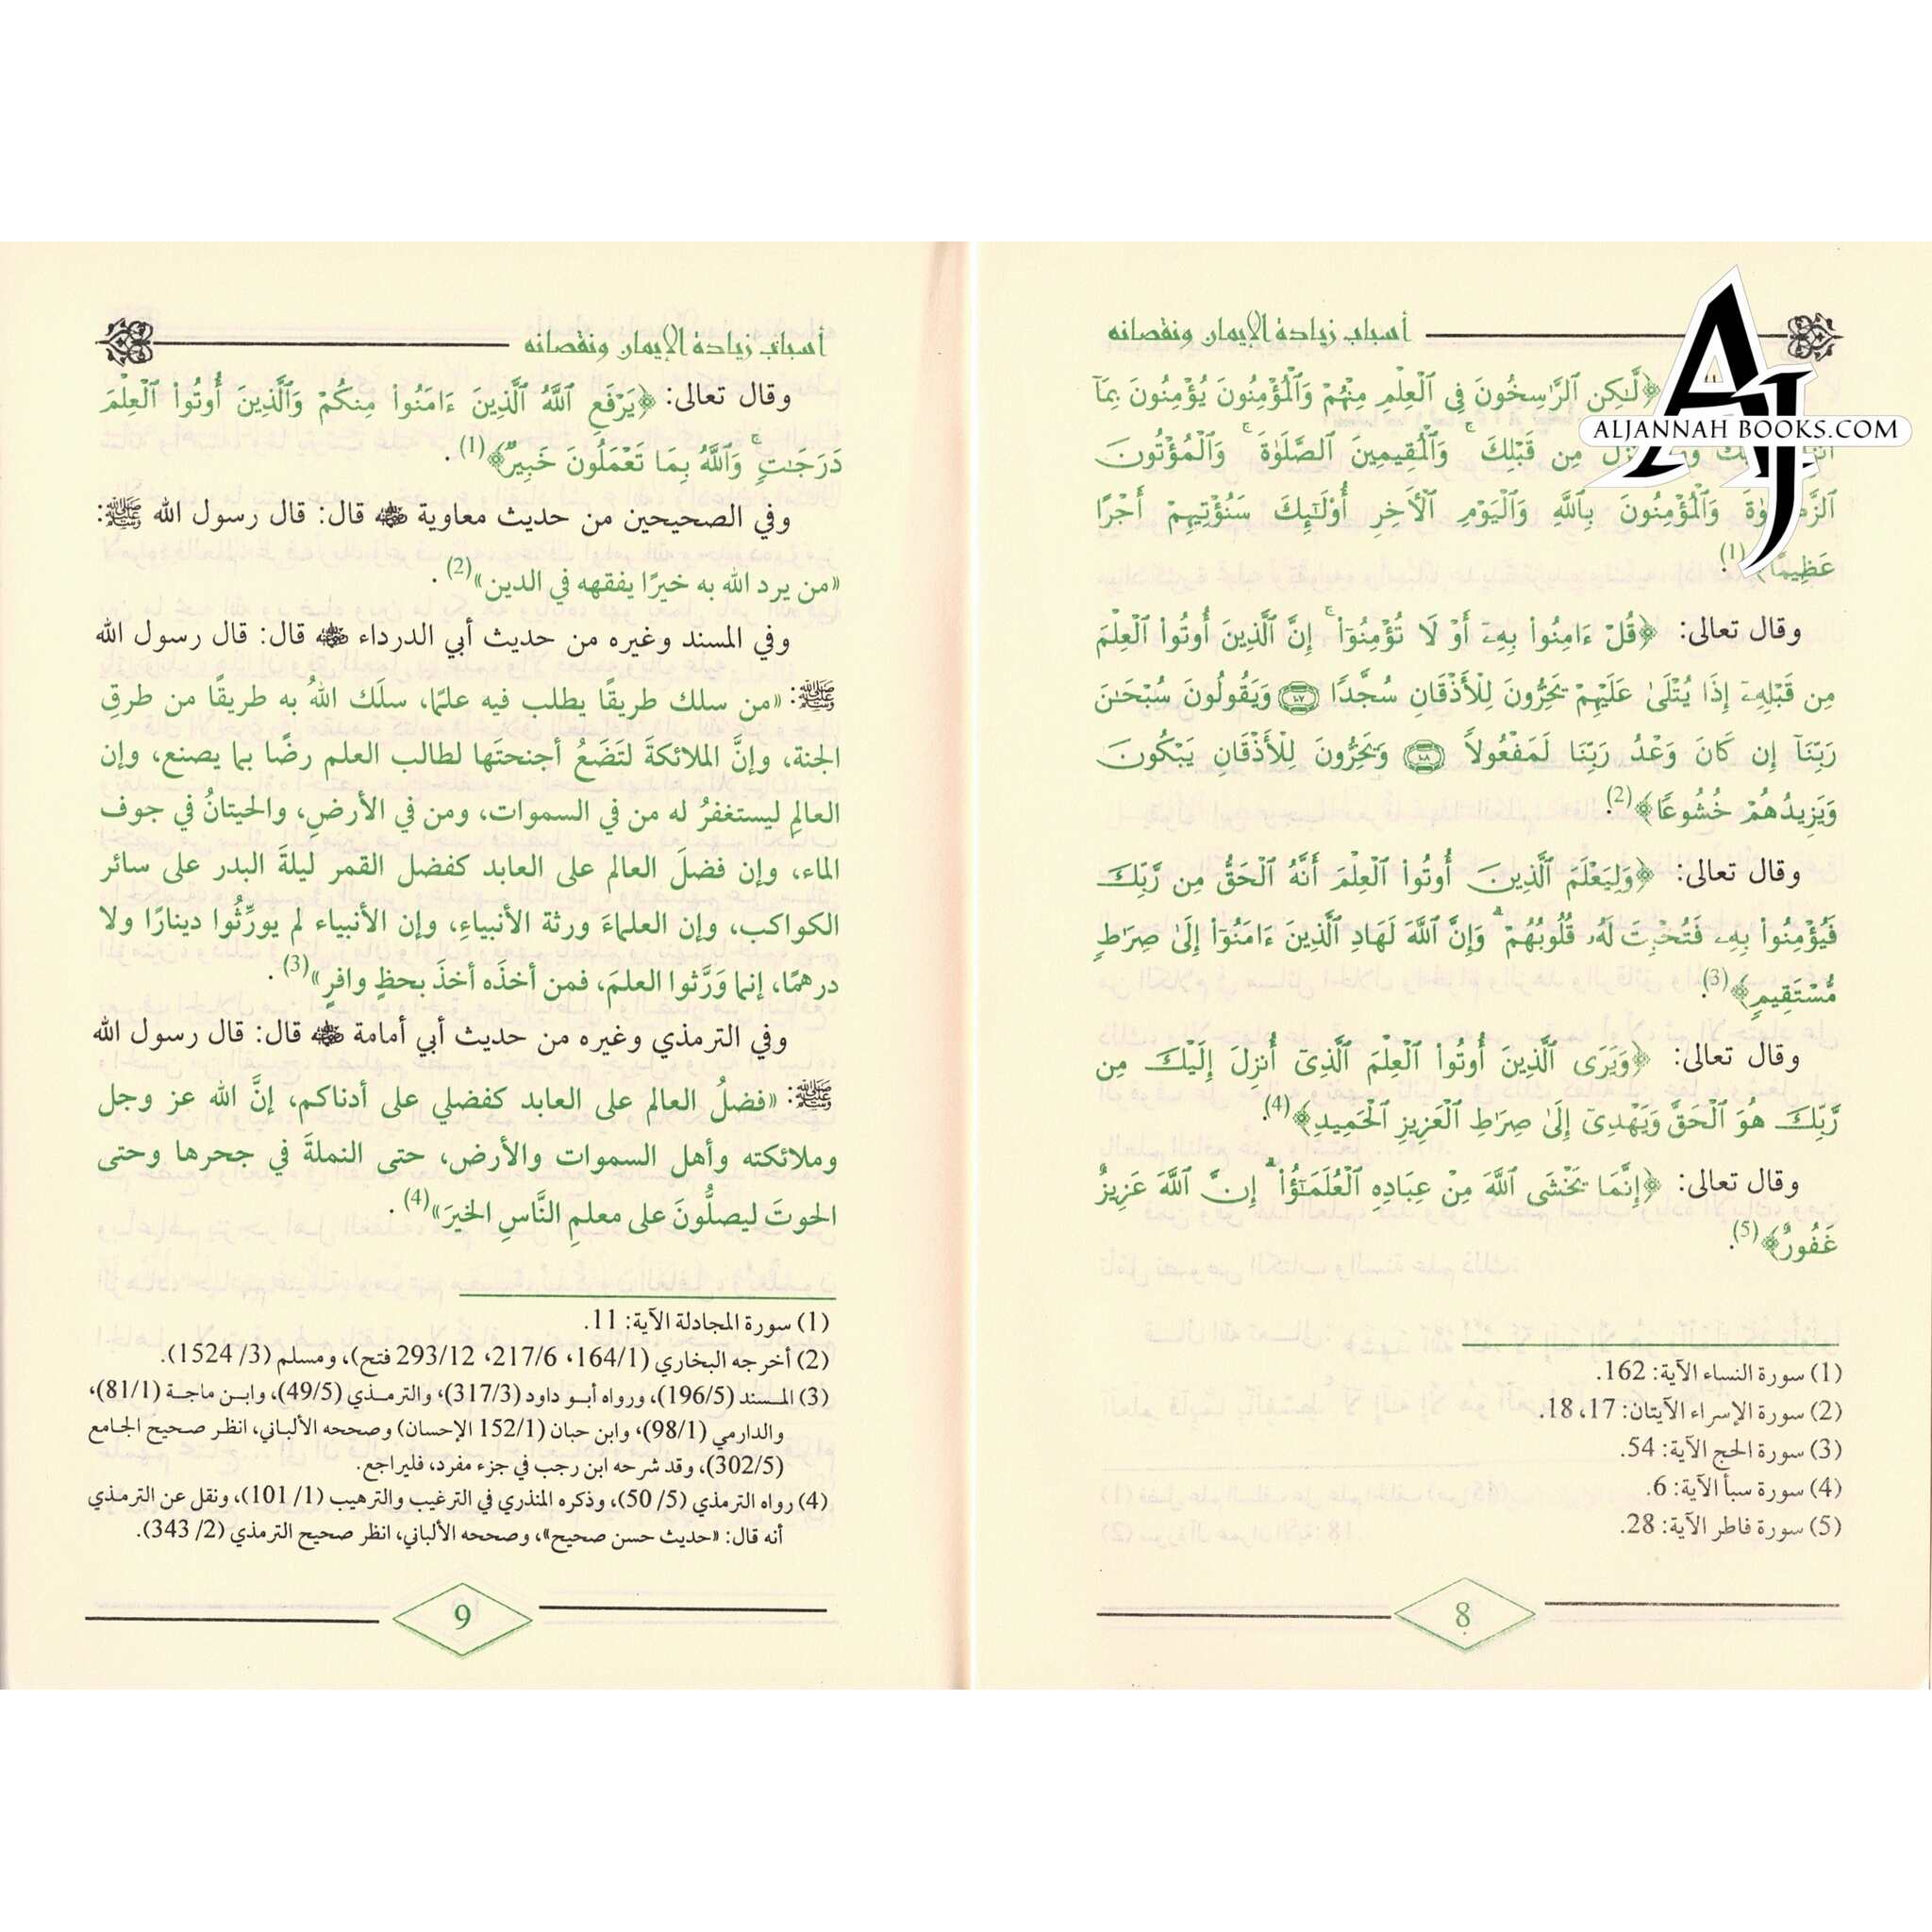 أسباب زيادة الإيمان ونقصانه
﴿لَّٰكِنِ ٱلرَّٰسِخُونَ فِى ٱلْعِلْمِ مِنْهُمْ وَٱلْمُؤْمِنُونَ يُؤْمِنُونَ بِمَآ
مِن قَبْلِكَ ۚ وَٱلْمُقِيمِينَ ٱلصَّلَوٰةَ ۚ وَٱلْمُؤْتُونَ
وَٱلْمُؤْمِنُونَ بِٱللَّهِ وَٱلْيَوْمِ ٱلْأَخِرِ أُوْلَٰٓئِكَ سَنُؤْتِيهِمْ أَجْرًا
عَظِيمًا (1).
وقال تعالى: ﴿قُلْ ءَامِنُوا۟ بِهِۦٓ أَوْ لَا تُؤْمِنُوٓا۟ ۚ إِنَّ ٱلَّذِينَ أُوتُوا۟ ٱلْعِلْمَ
مِن قَبْلِهِۦٓ إِذَا يُتْلَىٰ عَلَيْهِمْ يَخِرُّونَ لِلْأَذْقَانِ سُجَّدًا ١٠٧ وَيَقُولُونَ سُبْحَٰنَ
رَبِّنَآ إِن كَانَ وَعْدُ رَبِّنَا لَمَفْعُولًا ١٠٨ وَيَخِرُّونَ لِلْأَذْقَانِ يَبْكُونَ
وَيَزِيدُهُمْ خُشُوعًا﴾(2).
وقال تعالى: ﴿وَلِيَعْلَمَ ٱلَّذِينَ أُوتُوا۟ ٱلْعِلْمَ أَنَّهُ ٱلْحَقُّ مِن رَّبِّكَ
فَيُؤْمِنُوا۟ بِهِۦ فَتُخْبِتَ لَهُۥ قُلُوبُهُمْ ۗ وَإِنَّ ٱللَّهَ لَهَادِ ٱلَّذِينَ ءَامَنُوٓا۟ إِلَىٰ صِرَٰطٍ
مُّسْتَقِيمٍ﴾(3).
وقال تعالى: ﴿وَيَرَى ٱلَّذِينَ أُوتُوا۟ ٱلْعِلْمَ ٱلَّذِىٓ أُنزِلَ إِلَيْكَ مِن
رَّبِّكَ هُوَ ٱلْحَقَّ وَيَهْدِىٓ إِلَىٰ صِرَٰطِ ٱلْعَزِيزِ ٱلْحَمِيدِ﴾(4).
وقال تعالى: ﴿إِنَّمَا يَخْشَى ٱللَّهَ مِنْ عِبَادِهِ ٱلْعُلَمَٰٓؤُا۟ ۗ إِنَّ ٱللَّهَ عَزِيزٌ
غَفُورٌ﴾(5).
(1) سورة النساء الآية: 162.
(2) سورة الإسراء الآيتان: 17، 18.
(3) سورة الحج الآية: 54.
(4) سورة سبأ الآية: 6.
(5) سورة فاطر الآية: 28.
8
أسباب زيادة الإيمان ونقصانه
وقال تعالى: ﴿يَرْفَعِ ٱللَّهُ ٱلَّذِينَ ءَامَنُوا۟ مِنكُمْ وَٱلَّذِينَ أُوتُوا۟ ٱلْعِلْمَ
دَرَجَٰتٍ ۚ وَٱللَّهُ بِمَا تَعْمَلُونَ خَبِيرٌ﴾(1).
وفي الصحيحين من حديث معاوية رضي الله عنه قال: قال رسول الله ﷺ:
«من يرد الله به خيرًا يفقهه في الدين»(2).
وفي المسند وغيره من حديث أبي الدرداء رضي الله عنه قال: قال رسول الله
ﷺ: «من سلك طريقًا يطلب فيه علمًا، سلَك اللهُ به طريقًا من طرقِ
الجنة، وإنَّ الملائكةَ لتَضَعُ أجنحتَها لطالب العلم رضًا بما يصنع، وإن
العالِم ليستغفرُ له من في السموات، ومن في الأرضِ، والحيتانُ في جوف
الماء، وإن فضلَ العالم على العابد كفضل القمر ليلةَ البدر على سائر
الكواكب، وإن العلماءَ ورثة الأنبياءِ، وإن الأنبياء لم يورِّثُوا دينارًا ولا
درهمًا، إنما وَرَّثوا العلمَ، فمن أخذَه أخذَ بحظٍ وافرٍ»(3).
وفي الترمذي وغيره من حديث أبي أمامة رضي الله عنه قال: قال رسول الله
ﷺ: «فضلُ العالم على العابد كفضلي على أدناكم، إنَّ الله عز وجل
وملائكته وأهل السموات والأرض، حتى النملةَ في جحرها وحتى
الحوتَ ليصلُّونَ على معلمِ النَّاسِ الخيرَ»(4).
(1) سورة المجادلة الآية: 11.
(2) أخرجه البخاري (164/1، 217/6، 293/12 فتح)، ومسلم (3/ 1524).
(3) المسند (196/5)، ورواه أبو داود (317/3)، والترمذي (49/5)، وابن ماجة (81/1)،
والدارمي (98/1)، وابن حبان (152/1 الإحسان) وصححه الألباني، انظر صحيح الجامع
(302/5)، وقد شرحه ابن رجب في جزء مفرد، فليراجع.
(4) رواه الترمذي (5/ 50)، وذكره المنذري في الترغيب والترهيب (1/ 101)، ونقل عن الترمذي
أنه قال: «حديث حسن صحيح»، وصححه الألباني، انظر صحيح الترمذي (2/ 343).
9
AJ
ALJANNAH BOOKS.COM